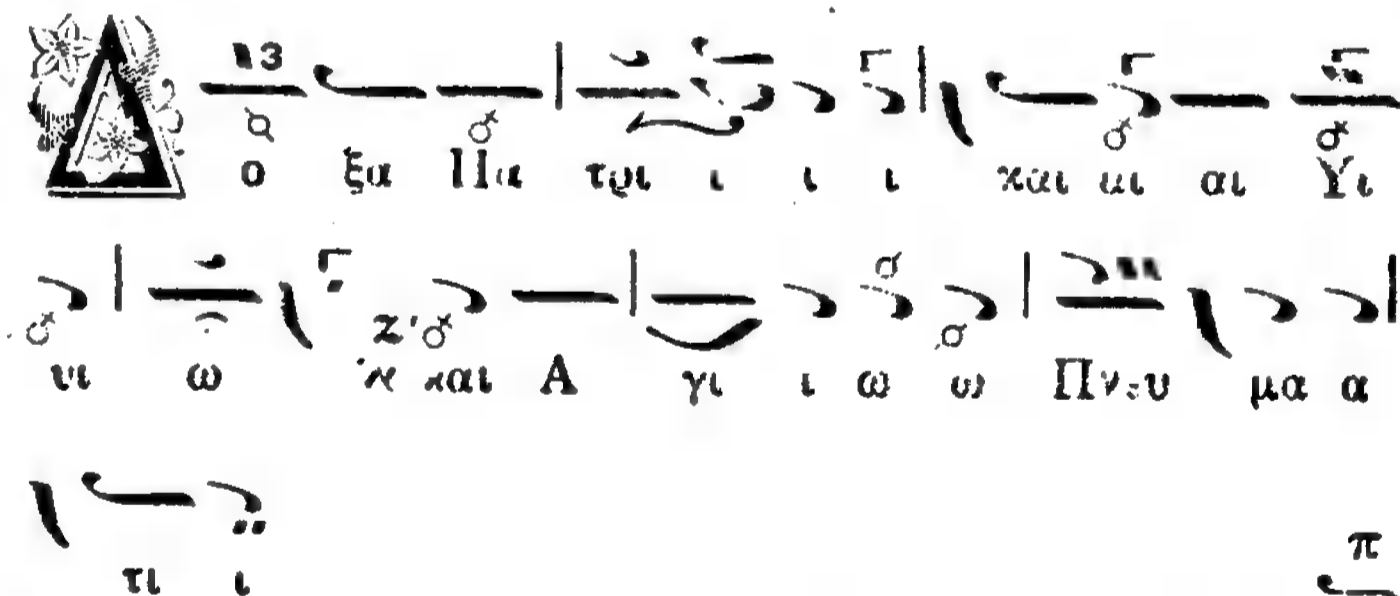 Δ ο ξα Πα τρι ι ι ι και αι αι Υι
υι ω και Α γι ι ω ω Πνευ μα α
τι ι
π